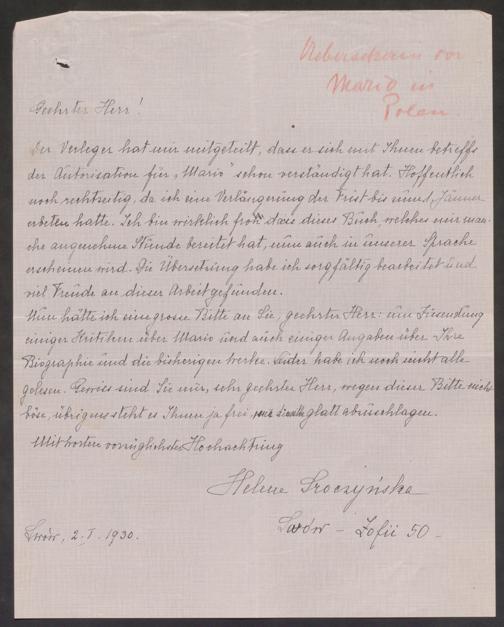 Uebersetzerin von
Mario in
Polen.
Geehrter Herr!
Der Verleger hat mir mitgeteilt, dass er sich mit Ihnen betreffs
der Autorisation für „Mario" schon verständigt hat. Hoffentlich
noch rechtzeitig, da ich eine Verlängerung der Frist bis zum 1. Jänner
erbeten hatte. Ich bin wirklich froh dass dieses Buch, welches mir man-
che angenehme Stunde bereitet hat, nun auch in unserer Sprache
erscheinen wird. Die Übersetzung habe ich sorgfältig bearbeitet und
viel Freude an dieser Arbeit gefunden.
Nun hätte ich eine grosse Bitte an Sie, geehrter Herr: um Zusendung
einiger Kritiken über Mario und auch einiger Angaben über Ihre
Biographie und die bisherigen Werke. Leider habe ich noch nicht alle
gelesen. Gewiss sind Sie mir, sehr geehrter Herr, wegen dieser Bitte nicht
böse, übrigens steht es Ihnen ja frei, mir glatt abzuschlagen.
Mit vorzüglichster Hochachtung
Helene
Lwów – Zofii 50 –
Lwów, 2. I. 1930.